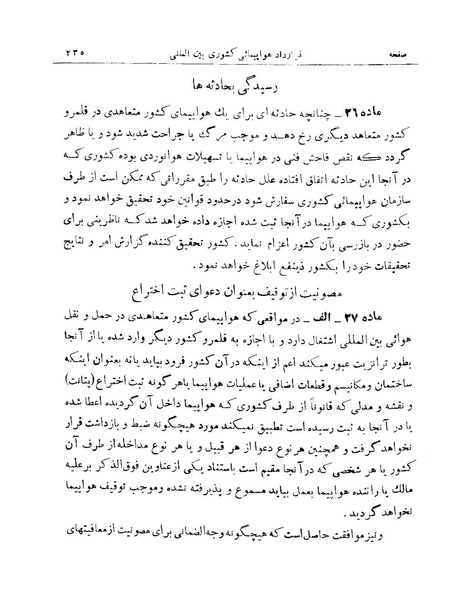 صفحه قرارداد هواپیمائی کشوری بین المللی ۲۳۵
رسیدگی بحادثه ها
ماده ۲۶ ـ چنانچه حادثه ای برای یك هواپیمای کشور متعاهدی در قلمرو
کشور متعاهد دیگری رخ دهد و موجب مرگ یا جراحت شدید شود و یا ظاهر
گردد که نقص فاحش فنی در هواپیما یا تسهیلات هوانوردی بوده کشوری که
در آنجا این حادثه اتفاق افتاده علل حادثه را طبق مقرراتی که ممکن است از طرف
سازمان هواپیمائی کشوری سفارش شود درحدود قوانین خود تحقیق خواهد نمود و
بکشوری که هواپیما در آنجا ثبت شده اجازه داده خواهد شد که ناظرینی برای
حضور در بازرسی بآن کشور اعزام نماید. کشور تحقیق کننده گزارش امر و نتایج
تحقیقات خود را بکشور ذینفع ابلاغ خواهد نمود .
مصونیت از توقیف بعنوان دعوای ثبت اختراع
ماده ۲۷ ـ الف ـ در مواقعی که هواپیمای کشور متعاهدی در حمل و نقل
هوائی بین المللی اشتغال دارد و با اجازه به قلمرو کشور دیگر وارد شده یا از آنجا
بطور ترانزیت عبور میکند اعم از اینکه در آن کشور فرود بیاید یانه بعنوان اینکه
ساختمان ومکانیسم وقطعات اضافی یاعملیات هواپیما یاهر گونه ثبت اختراع (پتانت)
و نقشه و مدلی که قانوناً از طرف کشوری که هواپیما داخل آن گردیده اعطا شده
یا در آنجا به ثبت رسیده است تطبیق نمیکند مورد هیچگونه ضبط و بازداشت قرار
نخواهد گرفت و همچنین هر نوع دعوا از هر قبیل و یا هر نوع مداخله از طرف آن
کشور یا هر شخصی که در آنجا مقیم است باستناد یکی از عناوین فوق الذکر برعلیه
مالك یا راننده هواپیما بعمل بیاید مسموع و پذیرفته نشده وموجب توقیف هواپیما
نخواهد گردید .
ونیز موافقت حاصل است که هیچگونه وجه الضمانی برای مصونیت از معافیتهای